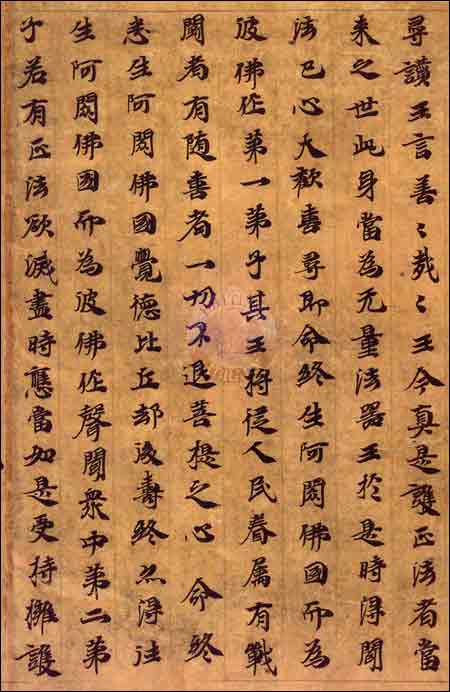 尋讚王言善〻哉〻王今真是護正法者當
来之世此身當為无量法器王於是時得聞
法已心大歡喜尋即命終生阿閦佛國而為
彼佛作第一第子其王將從人民眷属有戰
鬪者有随喜者一切不退菩提之心 命終
悉生阿閦佛國覺德比丘却後壽終亦得往
生阿閦佛國而為彼佛作聲聞衆中第二第
子若有正法欲滅盡時應當如是受持擁護